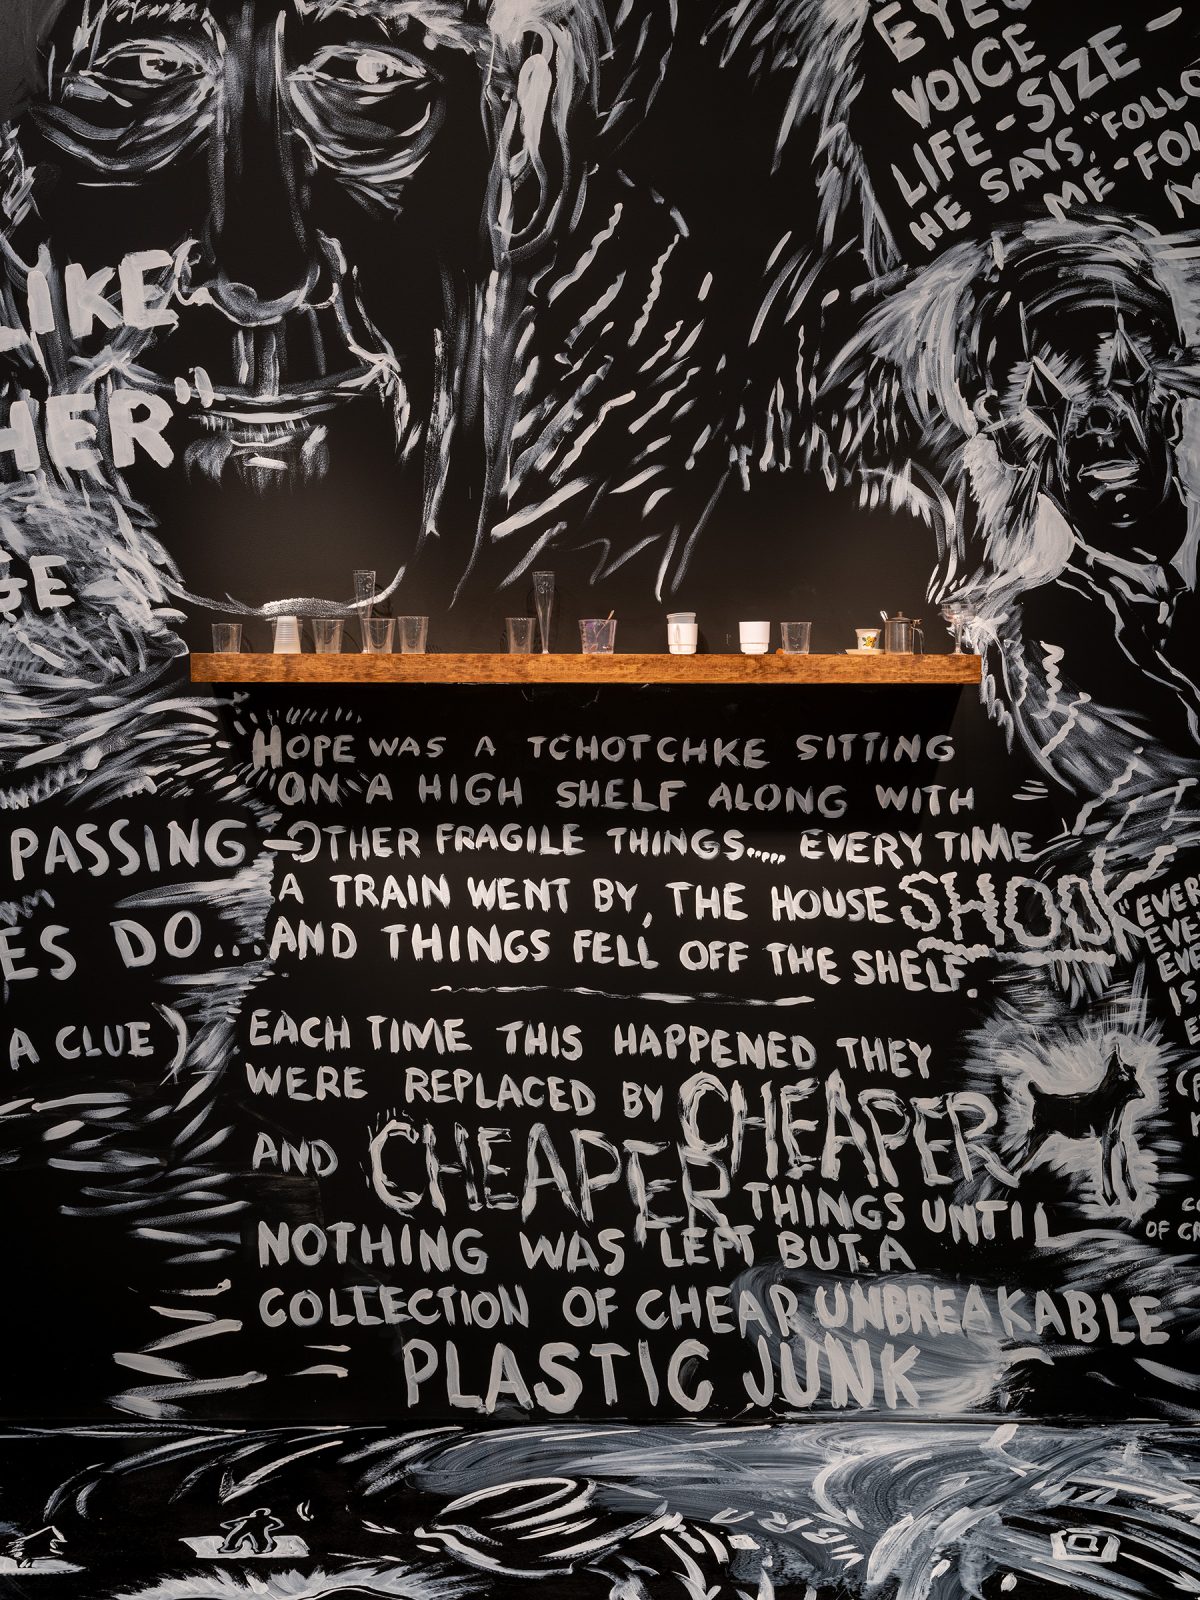 EYE
VOICE
LIFE-SIZE-
HE SAYS, "FOLLO
ME-FOL
M
LIKE
HER"
GE
HOPE WAS A TCHOTCHKE SITTING
ON A HIGH SHELF ALONG WITH
OTHER FRAGILE THINGS..... EVERY TIME
A TRAIN WENT BY, THE HOUSE SHOOK
AND THINGS FELL OFF THE SHELF.
EACH TIME THIS HAPPENED THEY
WERE REPLACED BY CHEAPER
AND CHEAPER THINGS UNTIL
NOTHING WAS LEFT BUT A
COLLECTION OF CHEAP UNBREAKABLE
PLASTIC JUNK
PASSING
ES DO...
A CLUE)
"EVER
EVE
EVE
IS
E
OF CR